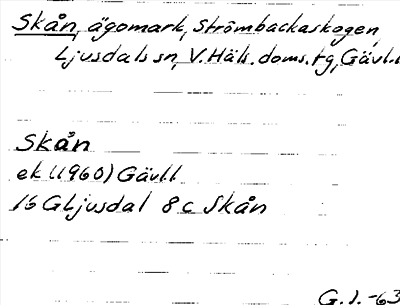 Skån, ägomark, Strömbackaskogen,
Ljusdals sn, V. Häls. doms. tg, Gävl.l
Skån
ek (1960) Gävll
16 G Ljusdal 8 c Skån
G. J. -63